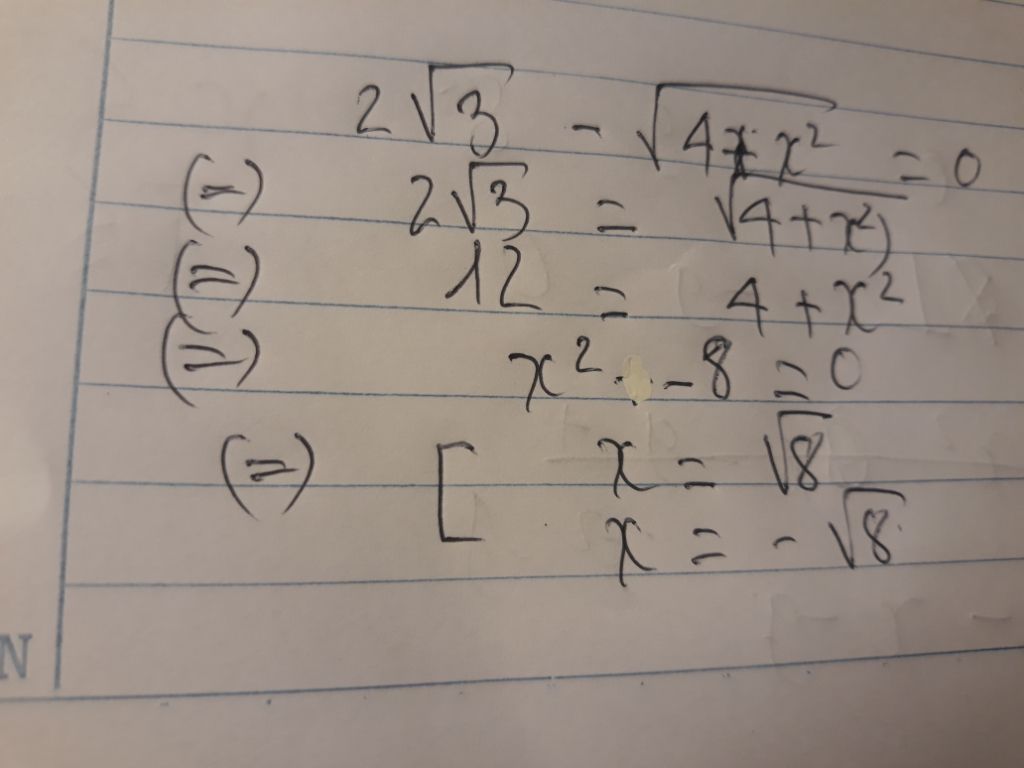 2√3 - √(4+x²) = 0
(=) 2√3 = √(4+x²)
(=) 12 = 4+x²
(=) x² - 8 = 0
(=) [ x = √8
x = -√8
N